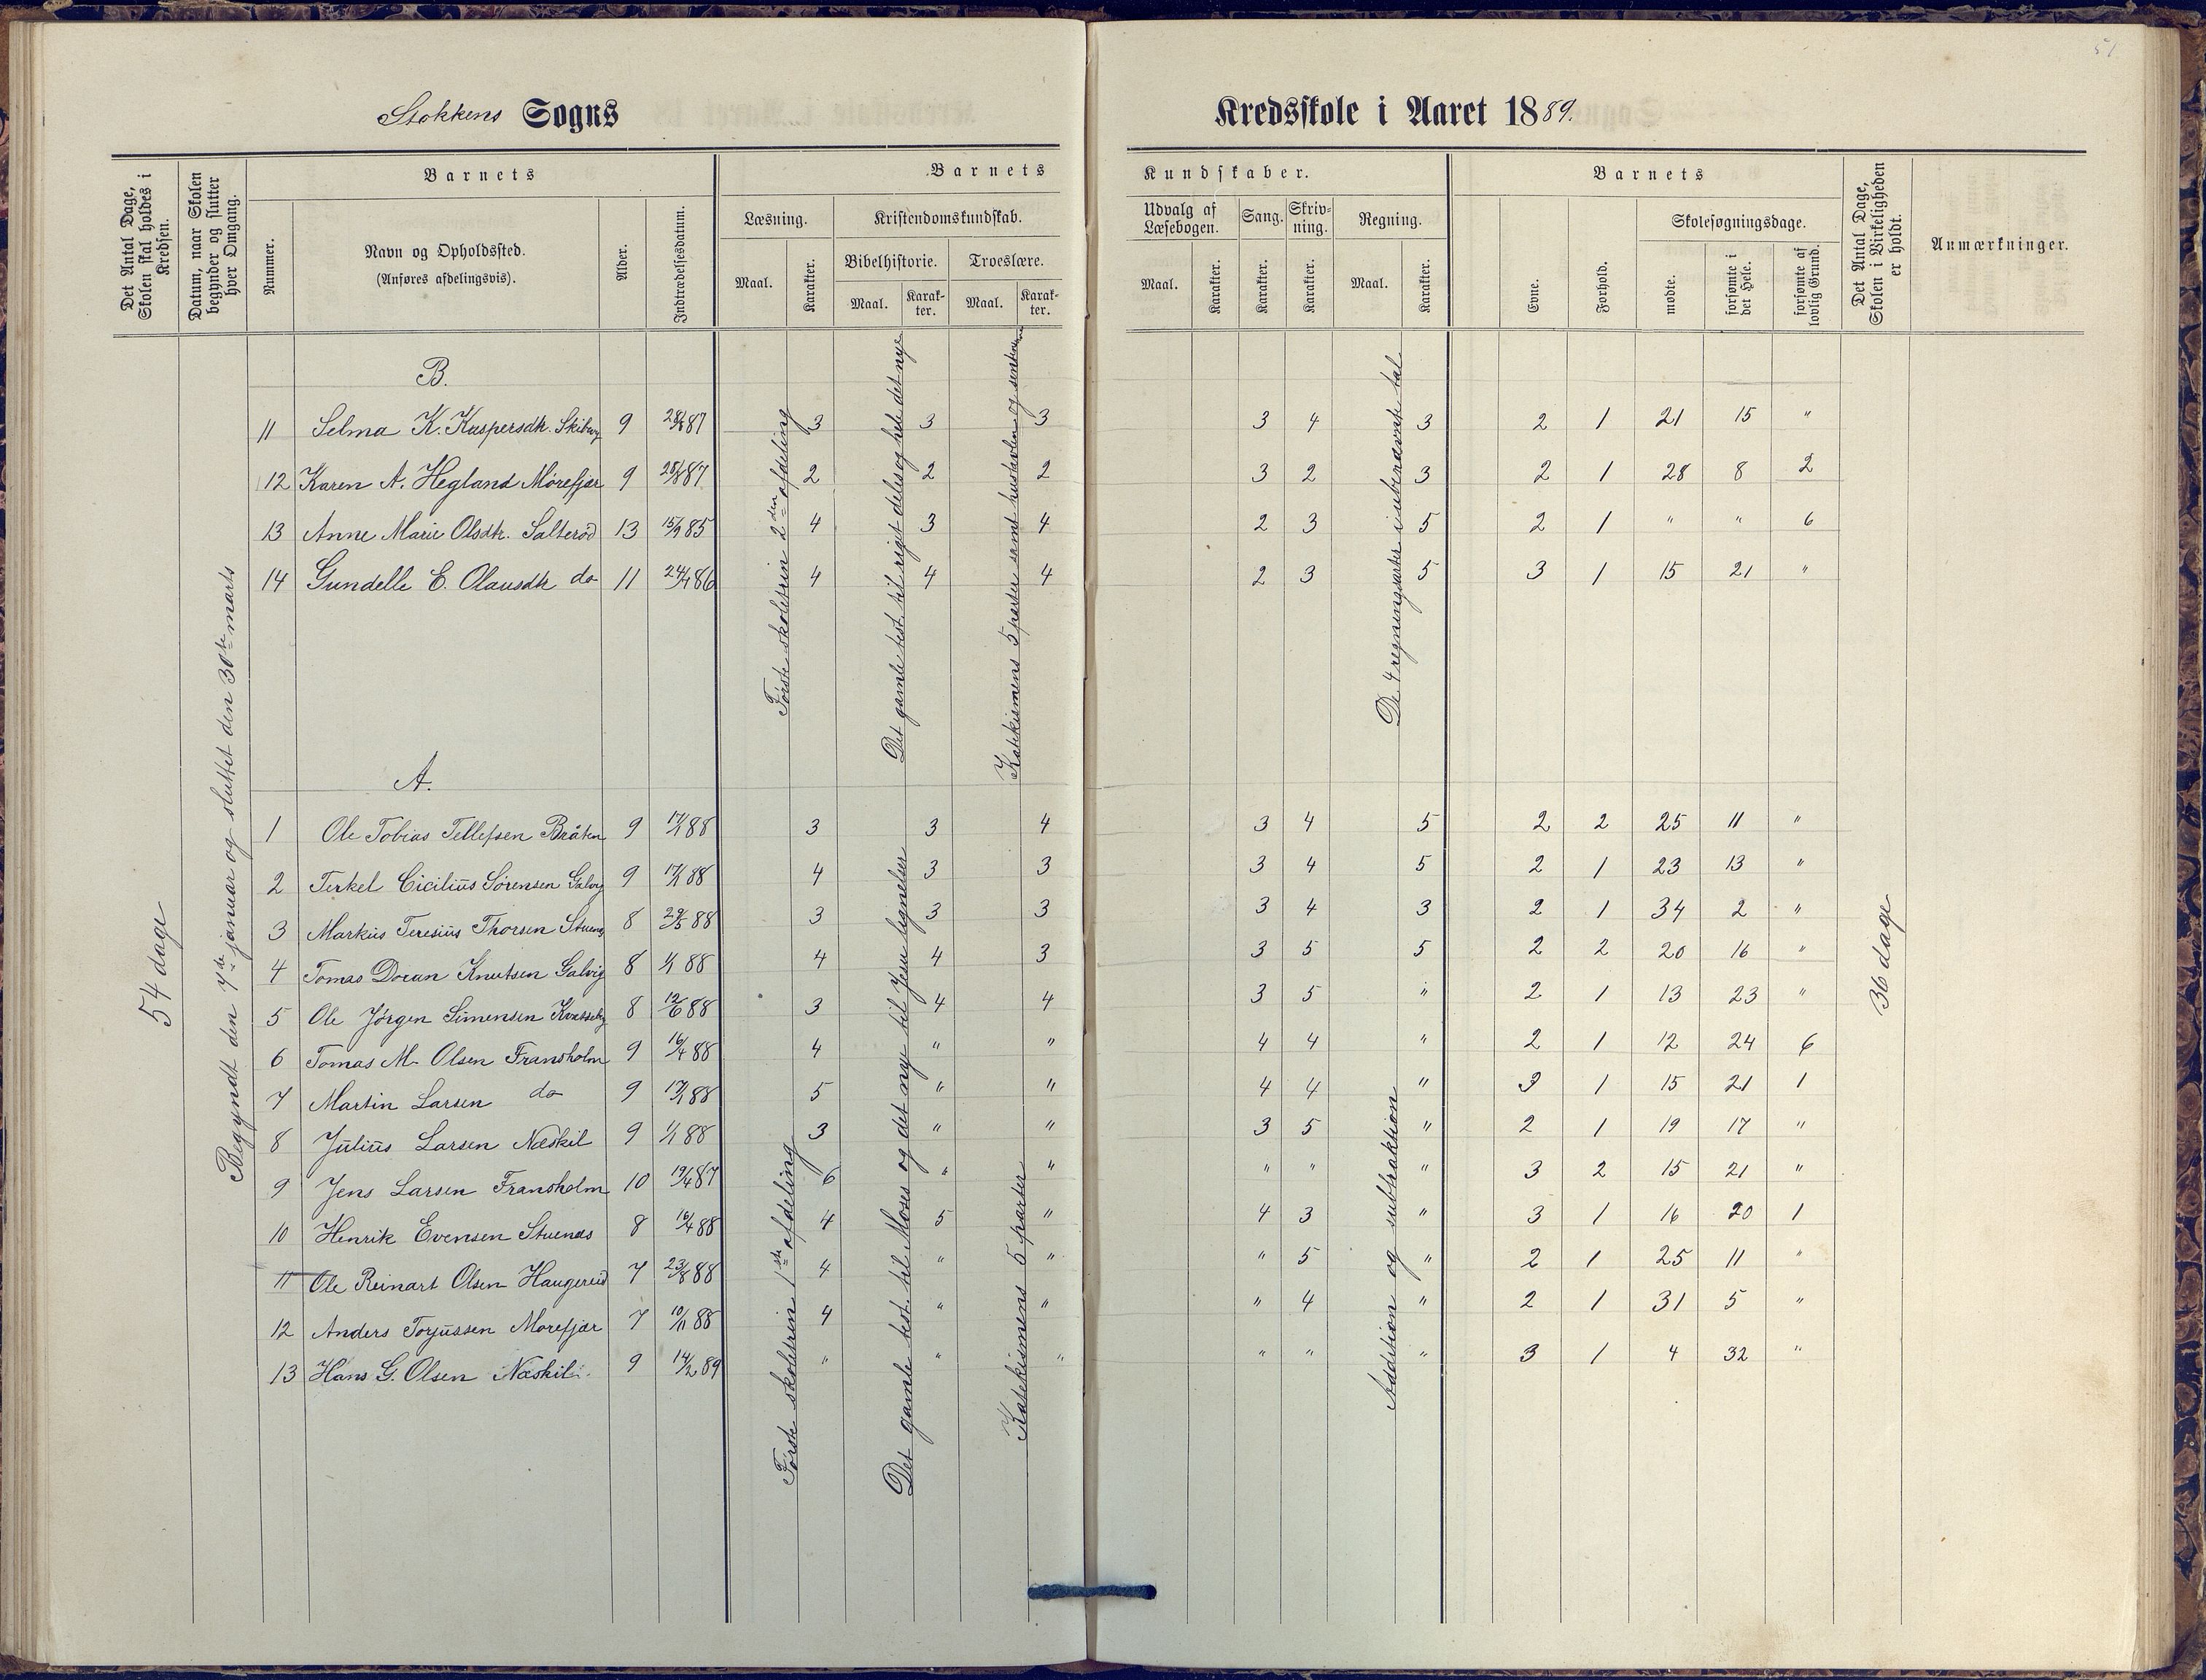 51
Stokkens Sogns
Kredsskole i Aaret 1889.
Det Antal Dage, Skolen skal holdes i Kredsen.
Datum, naar Skolen begynder og slutter hver Omgang.
Barnets
Nummer.
Navn og Opholdssted.
(Anføres afdelingsvis).
Alder.
Indtrædelsesdatum.
Barnets
Læsning.
Maal.
Karakter.
Kristendomskundskab.
Bibelhistorie.
Maal.
Karak-
ter.
Troeslære.
Maal.
Karak-
ter.
Kundskaber.
Udvalg af
Læsebogen.
Maal.
Karakter.
Sang.
Karakter.
Skriv-
ning.
Karakter.
Regning.
Maal.
Karakter.
Barnets
Evne.
Forhold.
Skolesøgningsdage.
mødte.
forsømte i
det Hele.
forsømte af
lovlig Grund.
Det Antal Dage,
Skolen i Virkeligheden
er holdt.
Anmærkninger.
54 dage
Begyndt den 7de januar og sluttet den 30te marts
B.
11 Selma K. Kaspersdtr. 9 87 3 3 3 3 4 3 2 1 21 15 "
12 Karen A. Hegland Mørefjær 9 87 2 2 2 3 2 3 2 1 28 8 2
13 Anne Marie Olsdtr. Salterød 13 85 4 3 4 2 3 5 2 1 " " 6
14 Gundelle E. Olausdtr do 11 86 4 4 4 2 3 5 3 1 15 21 "
Første skoletrin 2den afdeling
Det gamle test. til riget deles og hele det nye
Katekismens 5 parter samt hustavlen og
De 4 regningsarter i ubenævnte tal
A.
1 Ole Tobias Tellefsen Bråten 9 17/1 88 3 3 4 3 4 5 2 2 25 11 "
2 Terkel Cicilius Sørensen Galvig 9 17/1 88 4 3 3 3 4 5 2 1 23 13 "
3 Markus Teresius Thorsen Stuenes 8 29/5 88 3 3 3 3 4 3 2 1 34 2 "
4 Tomas Doran Knutsen Galvig 8 88 4 4 3 3 5 5 2 2 20 16 "
5 Ole Jørgen Simensen 8 12/6 88 3 4 4 3 5 " 2 1 13 23 "
6 Tomas M. Olsen Fransholm 9 16/4 88 4 " " 4 4 " 2 1 12 24 6
7 Martin Larsen do 9 17/1 88 5 " " 4 4 " 3 1 15 21 1
8 Julius Larsen Næskil 9 88 3 " " 3 5 " 2 1 19 17 "
9 Jens Larsen Fransholm 10 19/4 87 6 " " " " " 3 2 15 21 "
10 Henrik Evensen Stuenes 8 16/4 88 4 5 " 4 3 " 3 1 16 20 1
11 Ole Reinart Olsen Haugereid 7 23/8 88 4 " " " 5 " 2 1 25 11 "
12 Anders Torjussen Morefjær 7 10/11 88 4 " " " 4 " 2 1 31 5 "
13 Hans G. Olsen Næskil 9 14/2 89 " " " " " " 3 1 4 32 "
Første skoletrin 1ste afdeling
Det gamle test. til Moses og det nye til Jesu lignelser
Katekismens 5 parter
Addition og subtraktion
36 dage